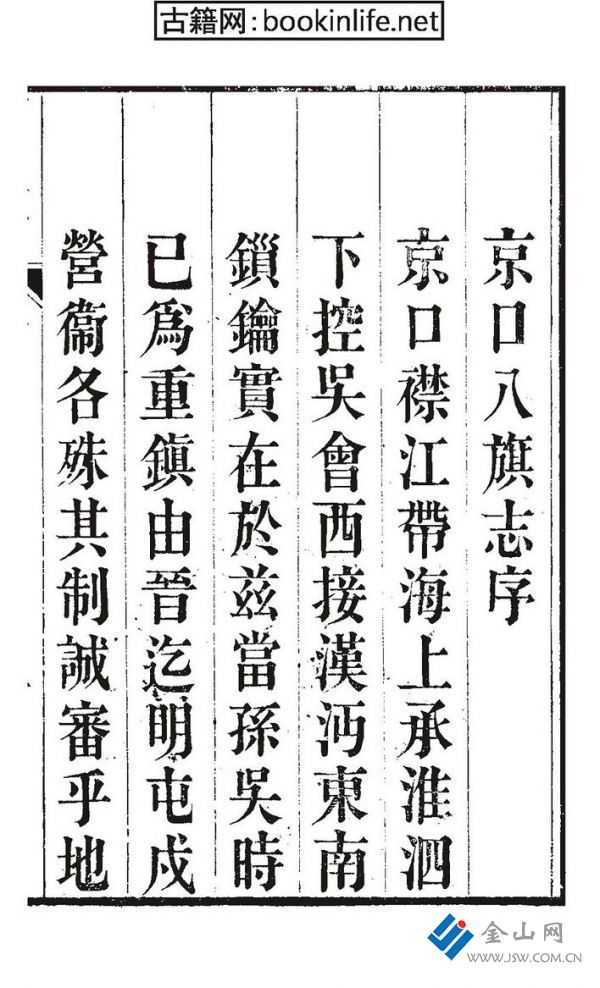 古籍网:bookinlife.net
京口八旗志序
京口襟江帶海上承淮泗
下控吳會西接漢沔東南
鎖鑰實在於茲當孫吳時
已爲重鎭由晉迄明屯戍
營衞各殊其制誠審乎地
金山网
WWW.JSW.COM.CN